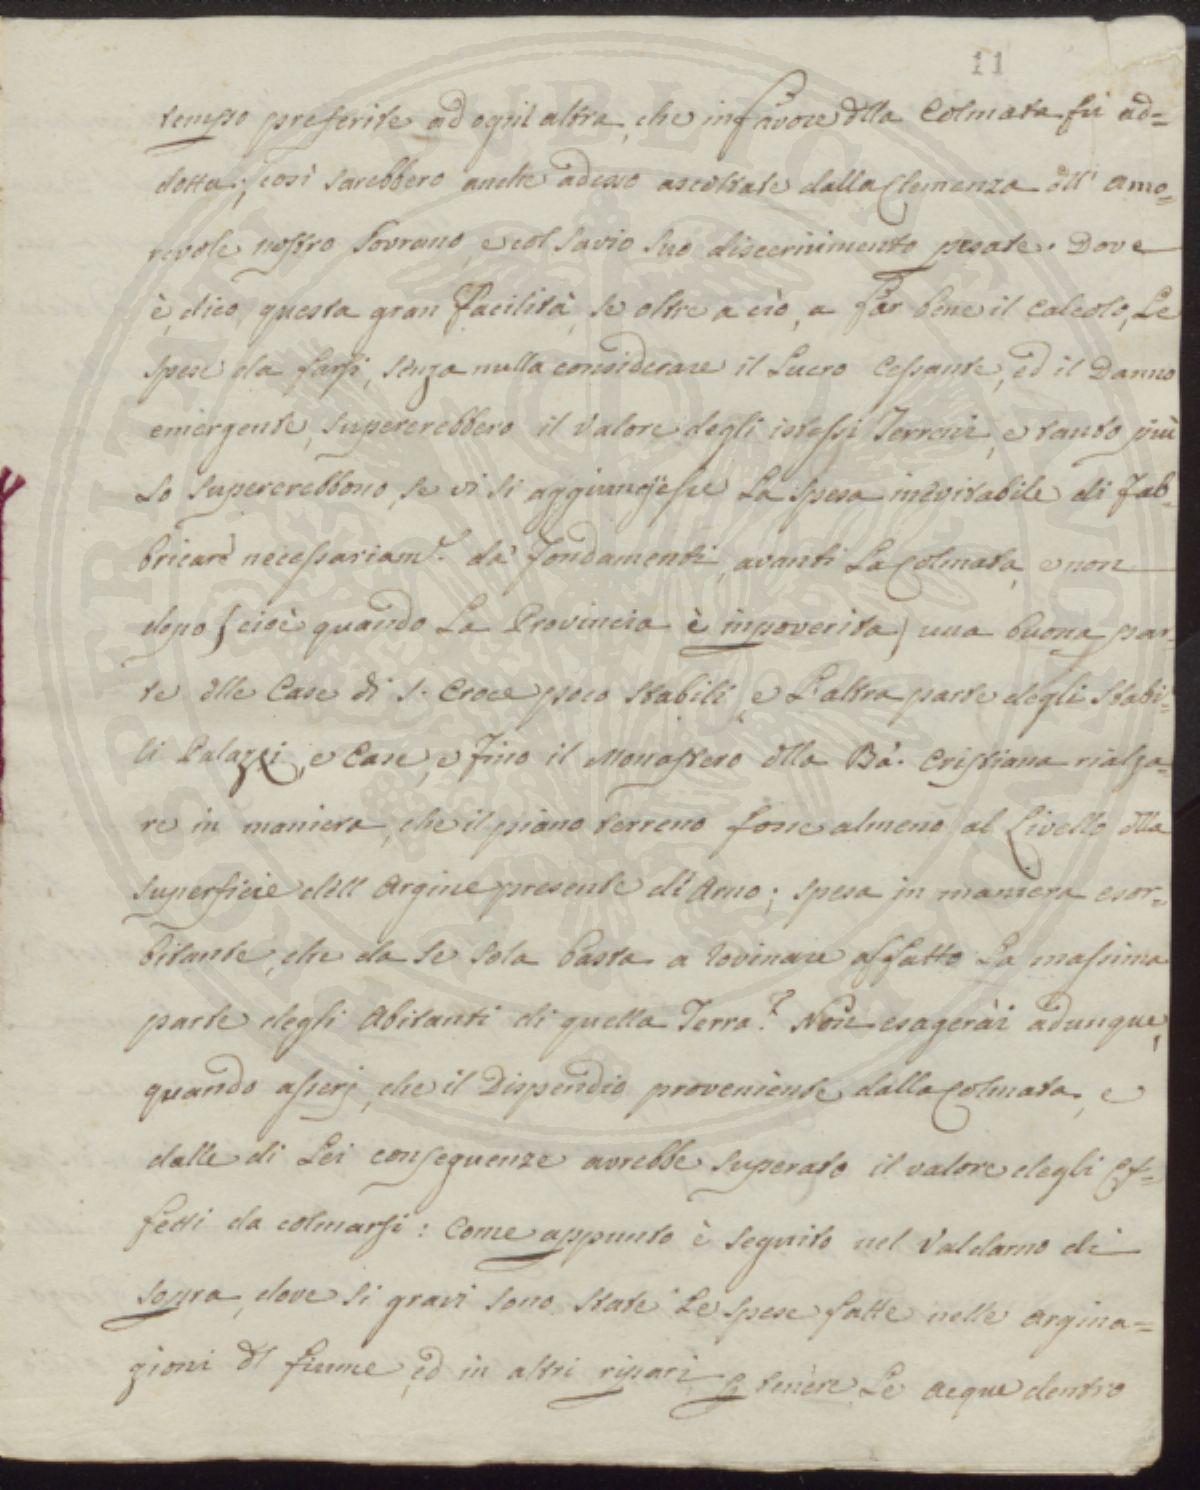 11
tempo preferite ad ogni altra, che in favore dlla Colmata fu ad=
dotta; così sarebbero anche adesso ascoltate dalla Clemenza dll' amo=
revole nostro Sovrano, e col savio suo discernimento pesate. Dove
è, dico, questa gran facilità, se oltre a ciò, a far bene il Calcolo, Le
spese da farsi, senza nulla considerare il Lucro Cessante, ed il Danno
emergente, supererebbero il valore degli istessi Terreni, e tanto più
Lo supererebbono, se vi si aggiungesse La spesa inevitabile di fab=
bricare necessariam.e da' fondamenti, avanti La Colmata, e non
dopo (cioè quando La Provincia è impoverita) una buona par=
te dlle Case di S. Croce poco stabili, e L'altra parte degli stabi=
li Palazzi, e Case, e fino il Monastero dlla Bà. Cristiana rialza=
re in maniera, che il piano terreno fosse almeno al Livello dlla
superficie dell' Argine presente di Arno; spesa in maniera esor=
bitante, che da se sola basta a rovinare affatto La massima
parte degli Abitanti di quella Terra? Non esagerài adunque,
quando asserj, che il Dispendio proveniente dalla Colmata, e
dalle di Lei conseguenze avrebbe superato il valore degli Ef=
fetti da colmarsi: Come appunto è seguito nel Valdarno di
sopra, dove sì gravi sono state Le spese fatte nelle argina=
zioni dl fiume, ed in altri ripari p tenere Le acque dentro